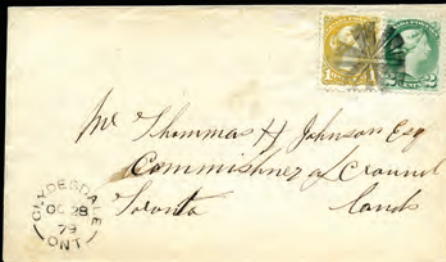 Mr Thommas H Johnson Esq
Commishner of Cround
Toronto lands
CLYDESDALE
OC 28
79
ONT